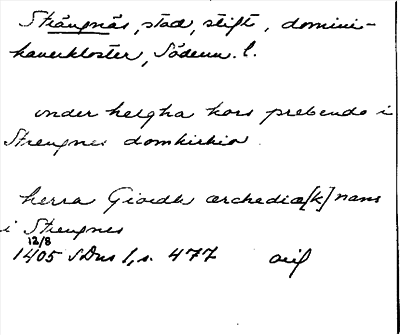 Strängnäs, stad, stift, domini-
kanerkloster, Söderm. l.
vnder helgha kors prebendo i
Strengnes domkirkio
herra Giordh ærchediæ[k]nans
i Strengnes
12/8
1405 SDns 1, s. 477 avs